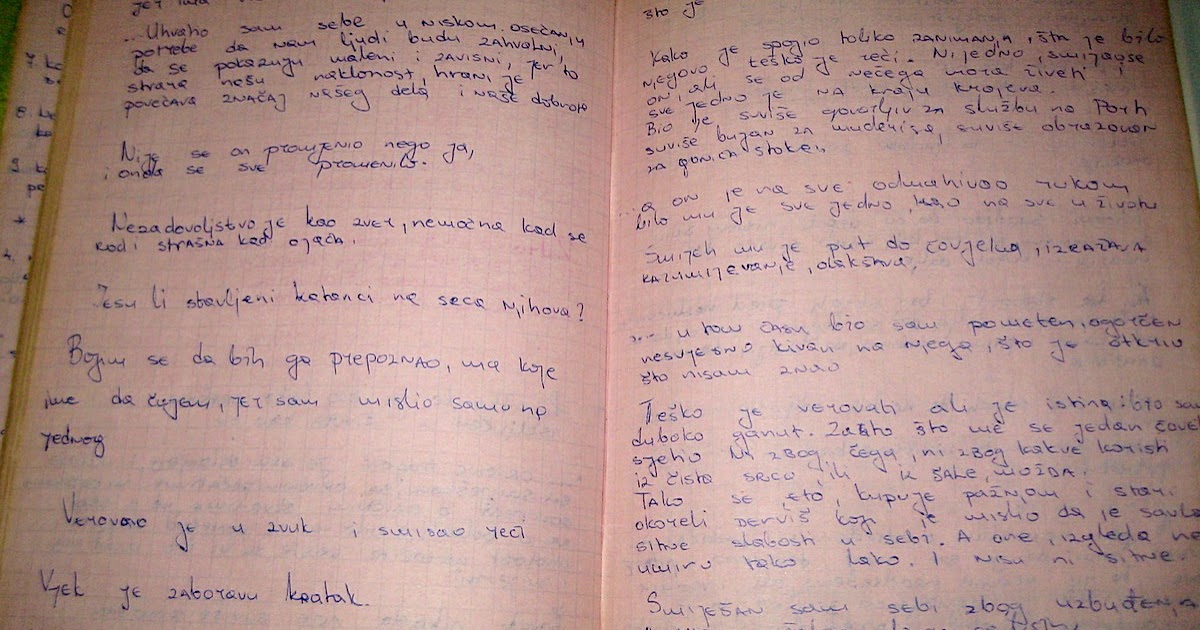 ...Uhvatio sam sebe u niskom osećanju
potrebe da nam ljudi budu zahvalni,
da se pokazuju maleni i zavisni, jer to
stvara nešu naklonost, hrani je
povećava značaj našeg dela i naše dobrote
Nije se on promjenio nego ja,
i onda se sve promenilo.
Nezadovoljstvo je kao zver, nemoćna kad se
rodi strašna kad ojača.
Jesu li stavljeni katanci na srca njihova?
Bojim se da bih ga prepoznao, ma koje
ime da čujem, jer sam mislio samo na
jednog
Verovao je u zvuk i smisao reči
Vjek je zaboravu kratak.
što je
Kako je spojio toliko zanimanja, šta je bilo
njegovo teško je reći. Nijedno, smijao se
on, ali se od nečega mora živeti i
sve jedno je na kraju krajeva.
Bio je suviše govorljiv za službu na Porti
suviše bujan za muderisa, suviše obrazovan
za goniča stoke"
...a on je na sve odmahivao rukom
bilo mu je sve jedno, kao na sve u životu
Smijeh mu je put do čovjeka, izražava
razumijevanje, olakšava,
... u tom času bio sam pometen, ogorčen
nesvjesno kivan na njega, što je otkrio
što nisam znao
Teško je verovati ali je istina: bio sam
duboko ganut. Zašto što me se jedan čovek
sjetio ni zbog čega, ni zbog kakve koristi
iz čista srca, ili iz šale, možda.
Tako se, eto, kupuje pažnjom i stari
okoreli derviš koji je mislio da je savla
sitne slabosti u sebi. A one, izgleda ne
umiru tako lako. I nisu ni sitne.
Smiješan sam sebi zbog uzbuđenja